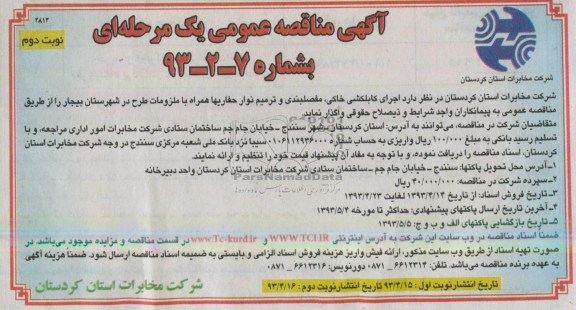 ۳۸۱۲
آگهی مناقصه عمومی یک مرحله‌ای
نوبت دوم
بشماره ۷-۲-۹۳
شرکت مخابرات استان کردستان
شرکت مخابرات استان کردستان در نظر دارد اجرای کابلکشی خاکی، مفصلبندی و ترمیم نوار حفاریها همراه با ملزومات طرح در شهرستان بیجار را از طریق
مناقصه عمومی به پیمانکاران واجد شرایط و ذیصلاح حقوقی واگذار نماید.
متقاضیان شرکت در مناقصه، می‌توانند به آدرس: استان کردستان، شهر سنندج - خیابان جام جم ساختمان ستادی شرکت مخابرات امور اداری مراجعه، و با
تسلیم رسید بانکی به مبلغ ۱۰۰/۰۰۰ ریال واریزی به حساب شماره ۰۱۰۶۱۱۲۹۳۶۰۰۰ سیبا نزد بانک ملی شعبه مرکزی سنندج در وجه شرکت مخابرات استان
کردستان، اسناد مناقصه را دریافت نموده، و با توجه به مفاد آن پیشنهاد قیمت خود را تنظیم و ارائه نمایند.
۱-آدرس محل تحویل پاکتها: سنندج - خیابان جام جم -ساختمان ستادی شرکت مخابرات استان کردستان واحد دبیرخانه
۲-سپرده شرکت در مناقصه: ۴۰/۰۰۰/۰۰۰ ریال
۳-تاریخ فروش اسناد: از تاریخ ۱۳۹۳/۴/۱۴ لغایت ۱۳۹۳/۴/۲۳
۴-آخرین تاریخ ارسال پاکتهای پیشنهادی: حداکثر تا مورخه ۱۳۹۳/۵/۴
۵-تاریخ بازگشایی پاکتهای الف و ب و ج: ۱۳۹۳/۵/۵
ضمناً اسناد مناقصه در وب سایت این شرکت به آدرس اینترنتی WWW.TCI.IR و www.Tc-kurd.ir در قسمت مناقصه و مزایده موجود می‌باشد. در
صورت تهیه اسناد از طریق وب سایت مذکور، ارائه فیش واریز هزینه فروش اسناد الزامی و بایستی به ضمیمه اسناد مناقصه ارسال شود. ضمناً هزینه آگهی
به عهده برنده مناقصه می‌باشد. تلفن: ۶۶۱۲۳۱۴ - ۰۸۷۱ دورنویس: ۶۶۱۲۳۱۶ - ۰۸۷۱
تاریخ انتشار نوبت اول : ۹۳/۴/۱۵ تاریخ انتشار نوبت دوم : ۹۳/۴/۱۶
شرکت مخابرات استان کردستان
ParsNamadData